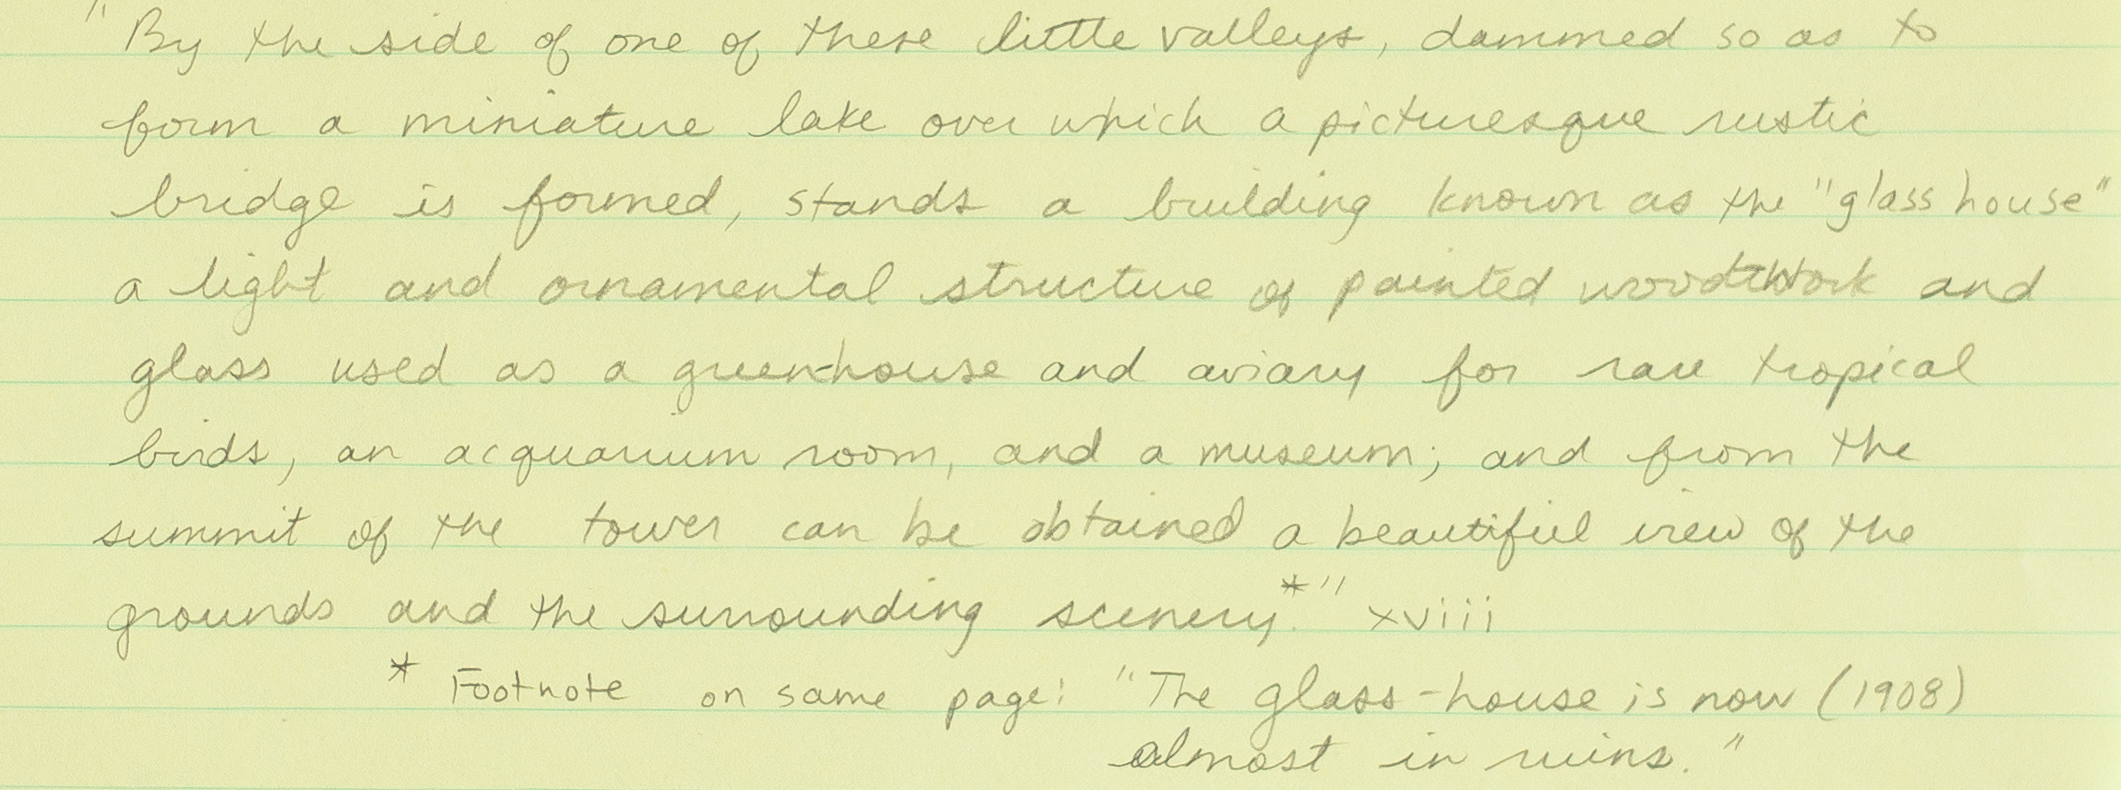 "By the side of one of these little valleys, dammed so as to
form a miniature lake over which a picturesque rustic
bridge is formed, stands a building known as the "glass house"
a light and ornamental structure of painted woodwork and
glass used as a green-house and aviary for rare tropical
birds, an acquarium room, and a museum; and from the
summit of the tower can be obtained a beautiful view of the
grounds and the surrounding scenery.*" xviii
* Footnote on same page: "The glass-house is now (1908)
almost in ruins."